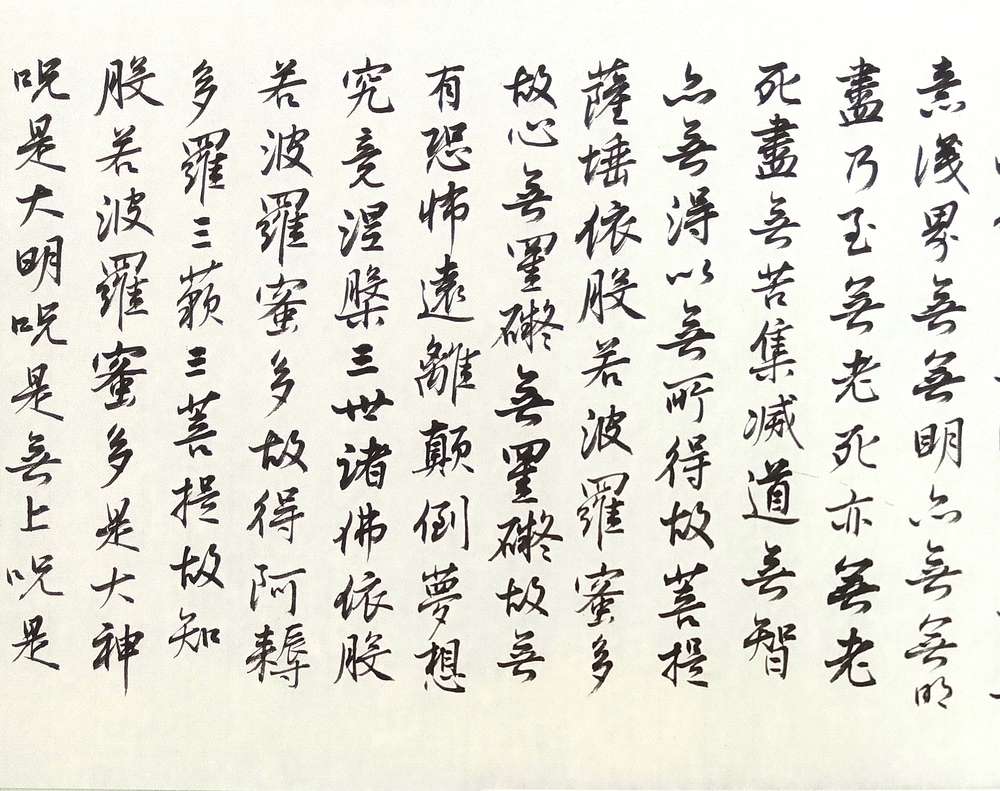 意識界無無明亦無無明
盡乃至無老死亦無老
死盡無苦集滅道無智
亦無得以無所得故菩提
薩埵依般若波羅蜜多
故心無罣礙無罣礙故無
有恐怖遠離顛倒夢想
究竟涅槃三世諸佛依般
若波羅蜜多故得阿耨
多羅三藐三菩提故知
般若波羅蜜多是大神
呪是大明呪是無上呪是